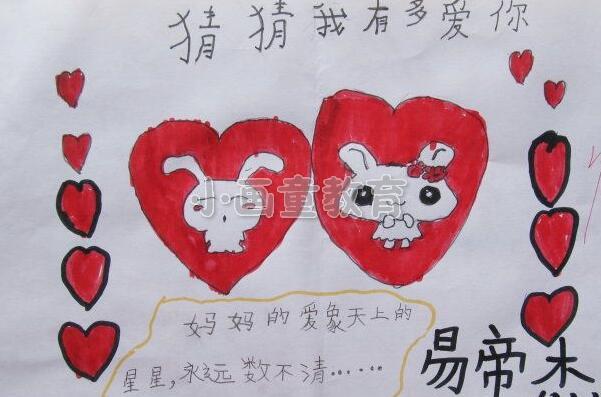 猜猜我有多爱你
小画童教育
妈妈的爱象天上的
星星,永远数不清……
易帝